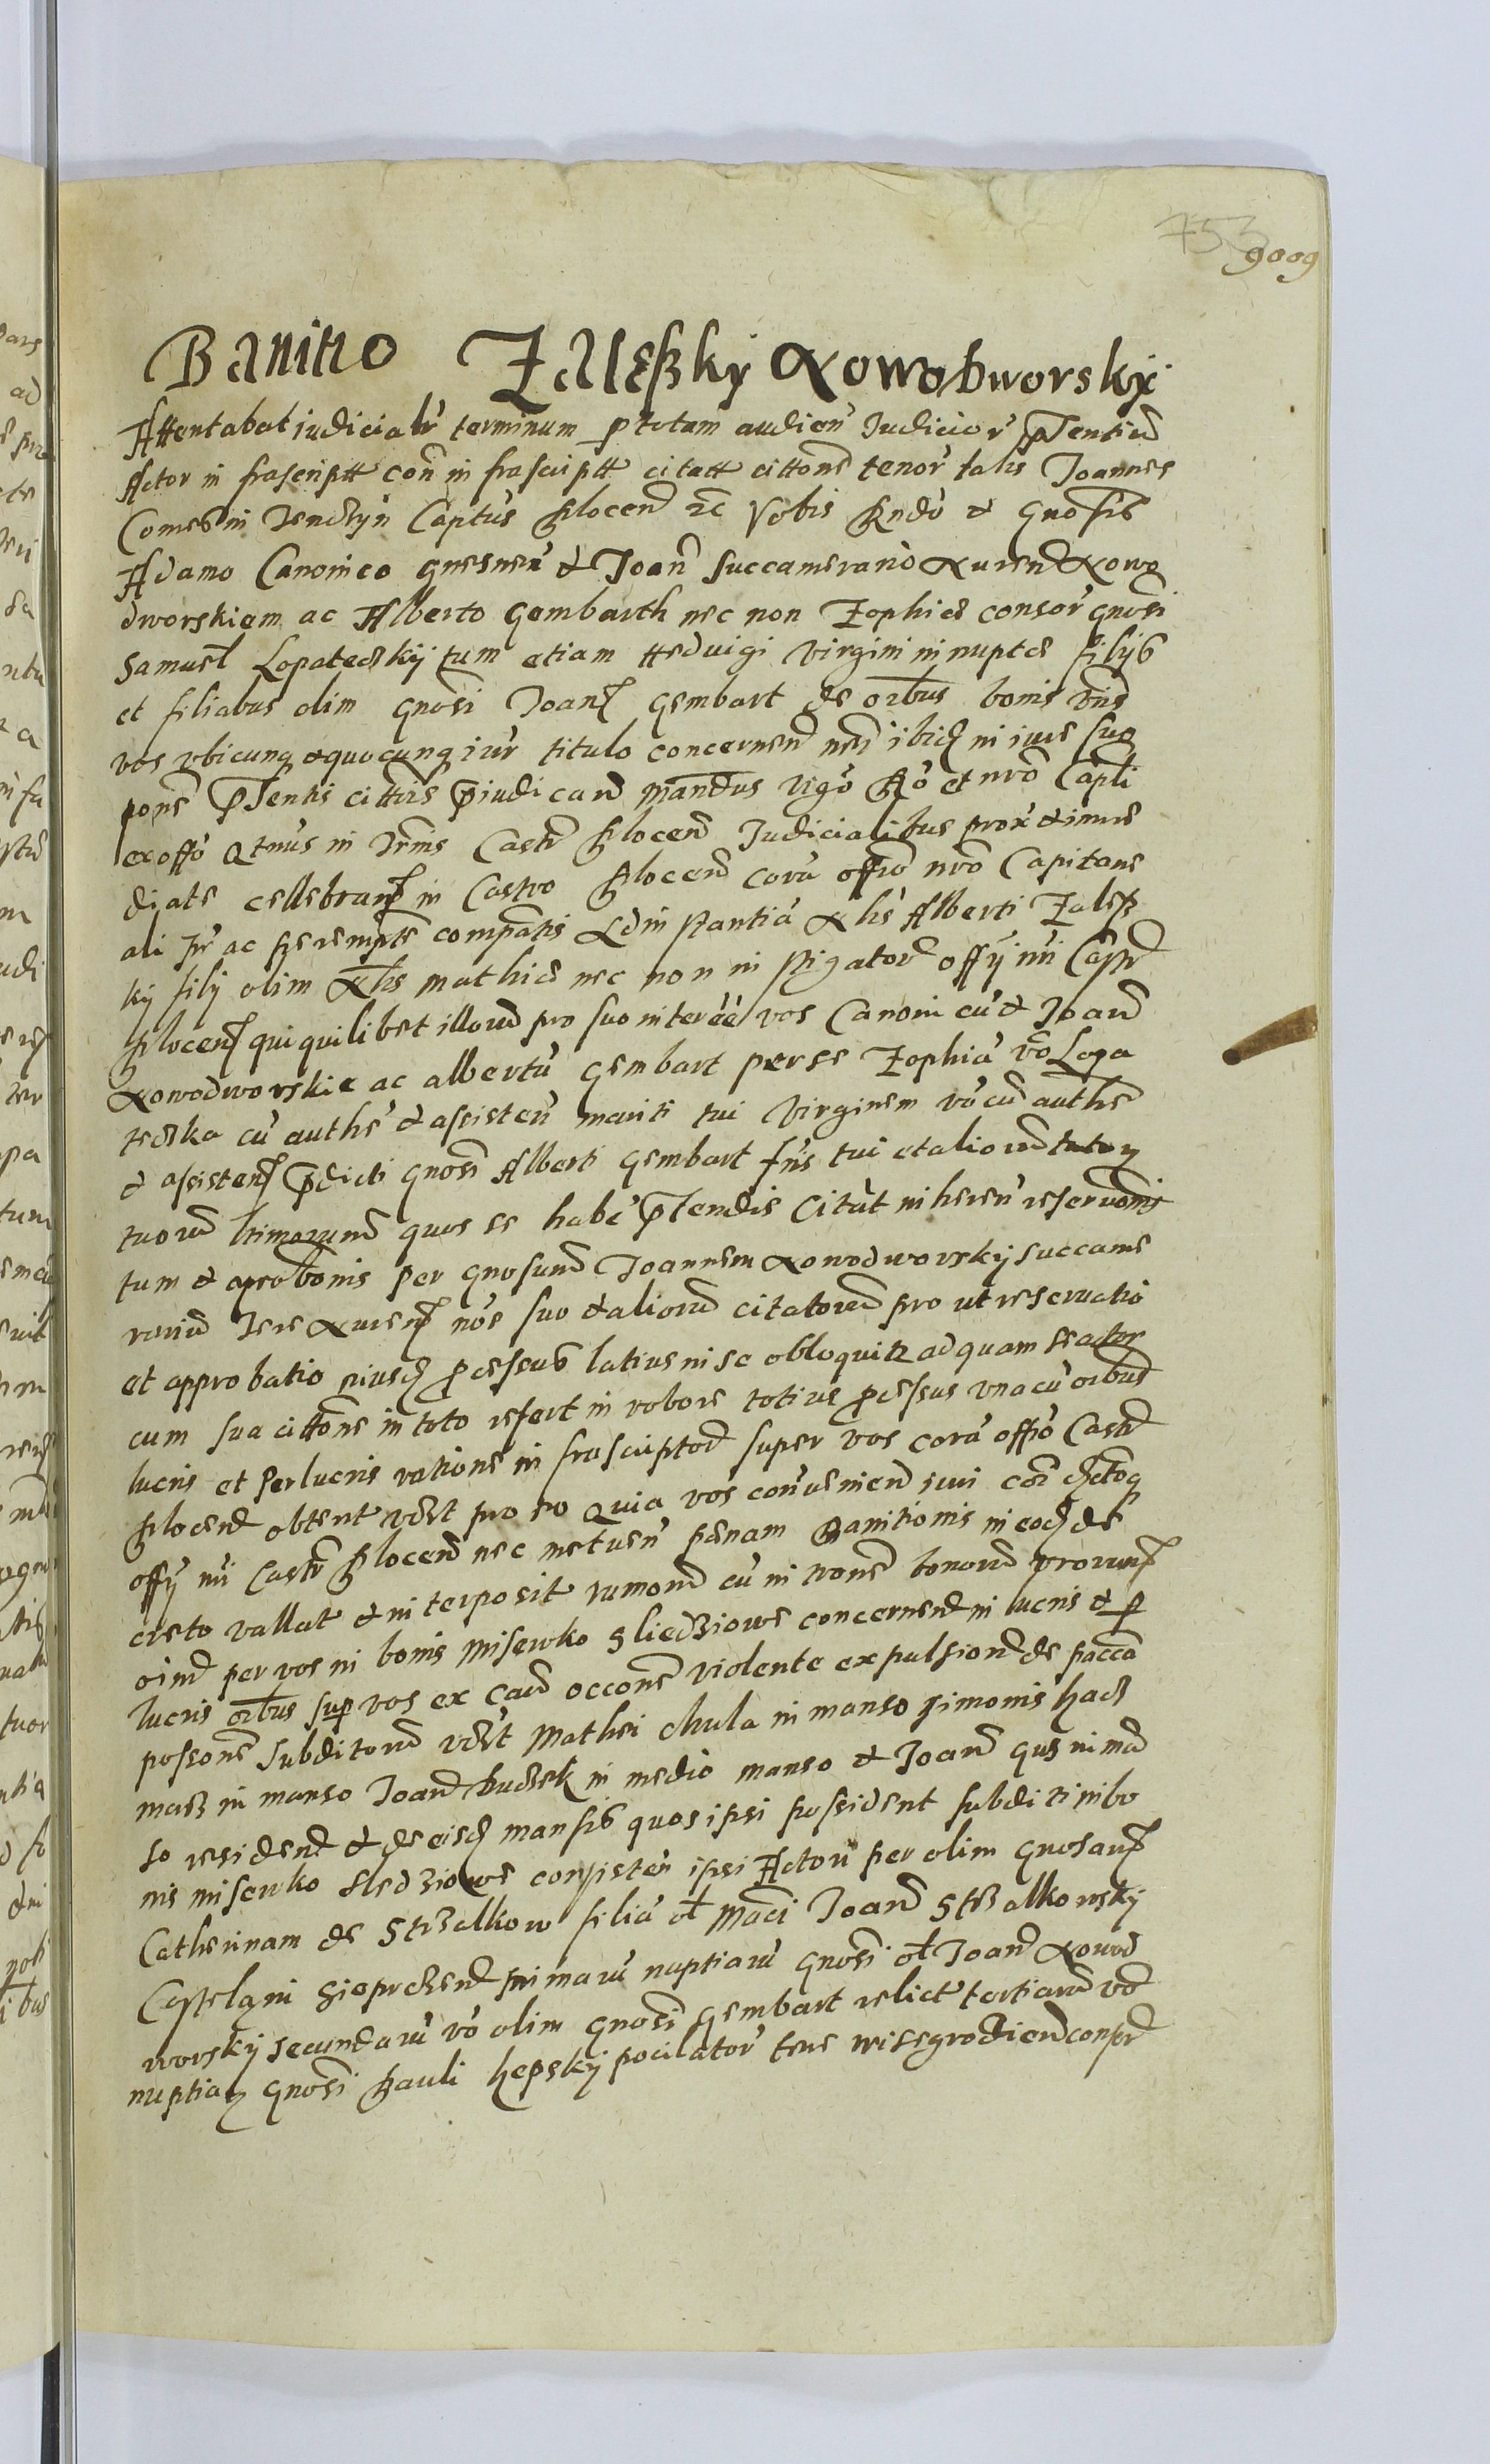 753
9009
Banitio Zalesky Nowodworsky
Attentabat iudicialr terminum p totam audien Judicior pntium
Actor in frascriptt con in frascriptt citatt cittone tenor talis Joannes
Comes in Tenczyn Captus Plocen zc Vobis Rndo et Gnosis
Adamo Canonico gnesnen et Joan Succamerario Nuren Nowo
dworskiem ac Alberto Gembarth nec non Zophiae consor gnosi
Samuel Lopateczky tum etiam Hedvigi Virgini innuptae filijs
et filiabus olim gnosi Joan Gembart de oibus bonis vris
vos vbicunq et quocunq iur titulo concernen
pone pntis cittois piudican mandus vigo Ro et nro Capli
ex offo qtnus in Trnis Castr Plocen Judicialibus prox et imme
diate cellebran in Castro Plocen cora offio nro Capitane
ali pr ac peremptr compatis Ad in stantia Nlis Alberti Zalesz
ky filij olim Nlis Mathiae nec non in stigator offij nri Castr
Plocen qui quilibet illoru pro suo interee vos Canonicu et Joan
Nowodworskie ac albertu Gembart per se Zophia vo Lopa
teczka cu authe et assisten mariti tui Virginem vo cu authe
et assisten pdicti gnosi Alberti Gembart fris tui et alioru tutor
tuoru ltimorum quos se habe ptendis Citat in heren reservonis
tum et aprobonis per gnosum Joannem Nowodworsky succame
rariu Terre Nuren noe suo et alioru citatoru pro ut reservatio
et approbatio eiusd pcessus latius in se obloquitr ad quam se actor
cum sua cittone in toto refert in robore totius pcessus vna cu oibus
lucris et perlucris ratione in frascriptor super vos cora offo Castr
Plocen obtent vdzt pro eo quia vos convenien iuri
offij nri Castr Plocen nec metuen paenam Banitionis in eod de
creto vallat et interposit rumon cu in trone bonoru
oim per vos in bonis Misewko Sliedziowe concernen in lucris et p
lucris oibus sup vos ex can occone violente expulsion de pacca
possone subditoru vdzt Mathei chula in manso Simonis hacz
macz in manso Joan Buczek in medio manso et Joan gus in man
so residen et de eisd mansis quos ipsi possident subditi in bo
nis Misewko Sledziowe consisten ipsi Actori per olim gnosam
Catherinam de Strzalkow filia ol Maci Joan Strzalkowsky
Castelani Sieprczen primaru nuptiaru gnosi ol Joan Nowod
worsky secundaru vo olim gnosi Gembart relict tertiaru vo
nuptiar gnosi Pauli hepsky pocilator terre wissegrodien conpr